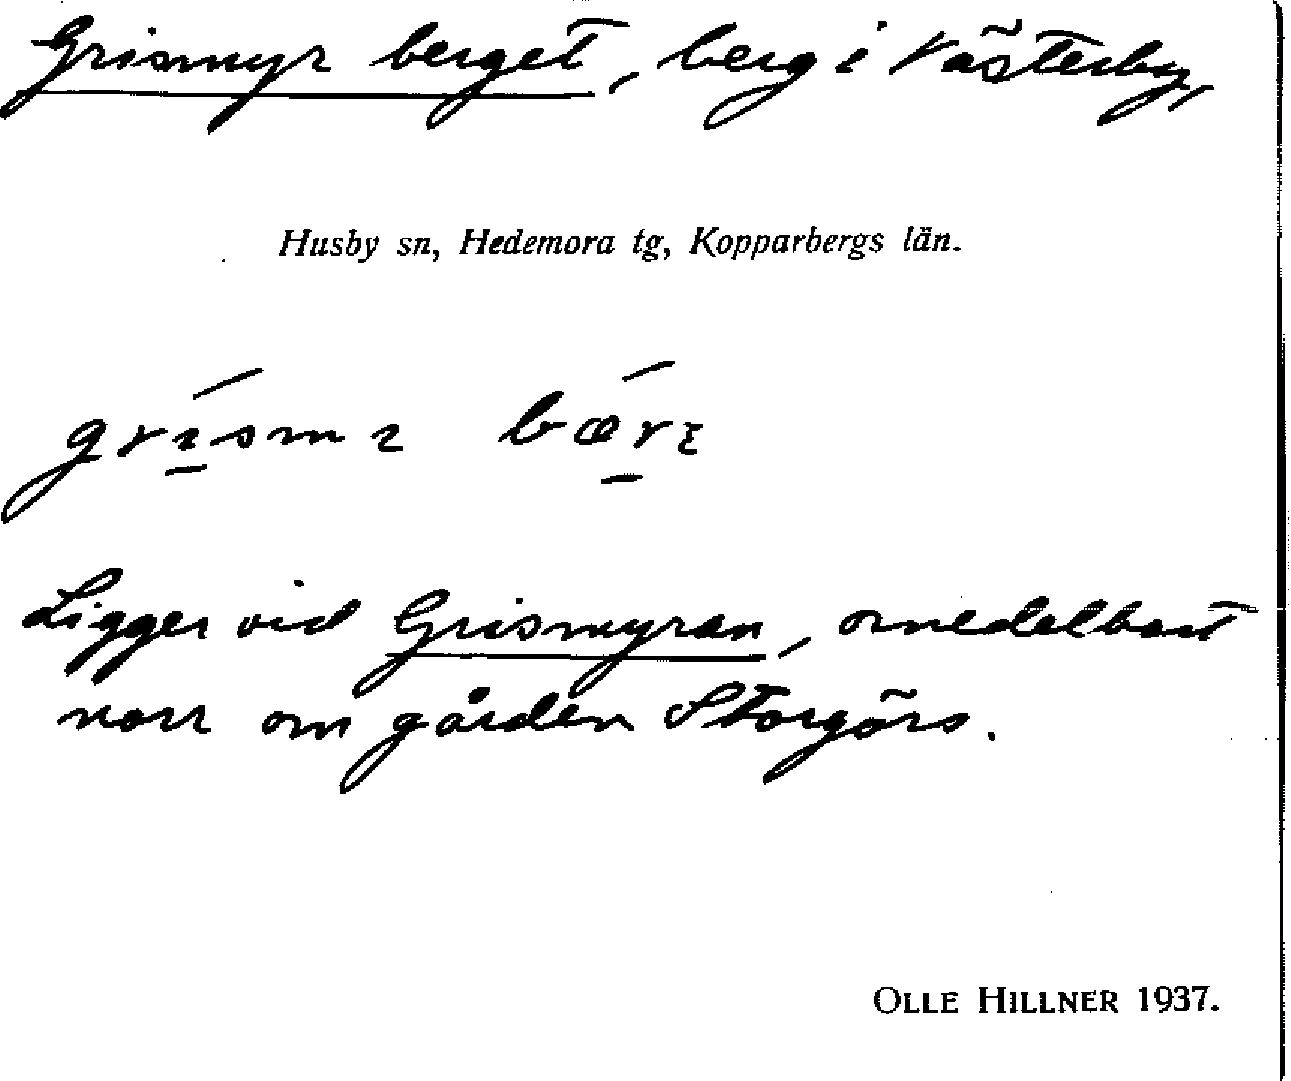 Grismyrberget, berg i Västerby,
Husby sn, Hedemora tg, Kopparbergs län.
Ligger vid Grismyran, omedelbart
norr om gården Storgörs.
OLLE HILLNER 1937.